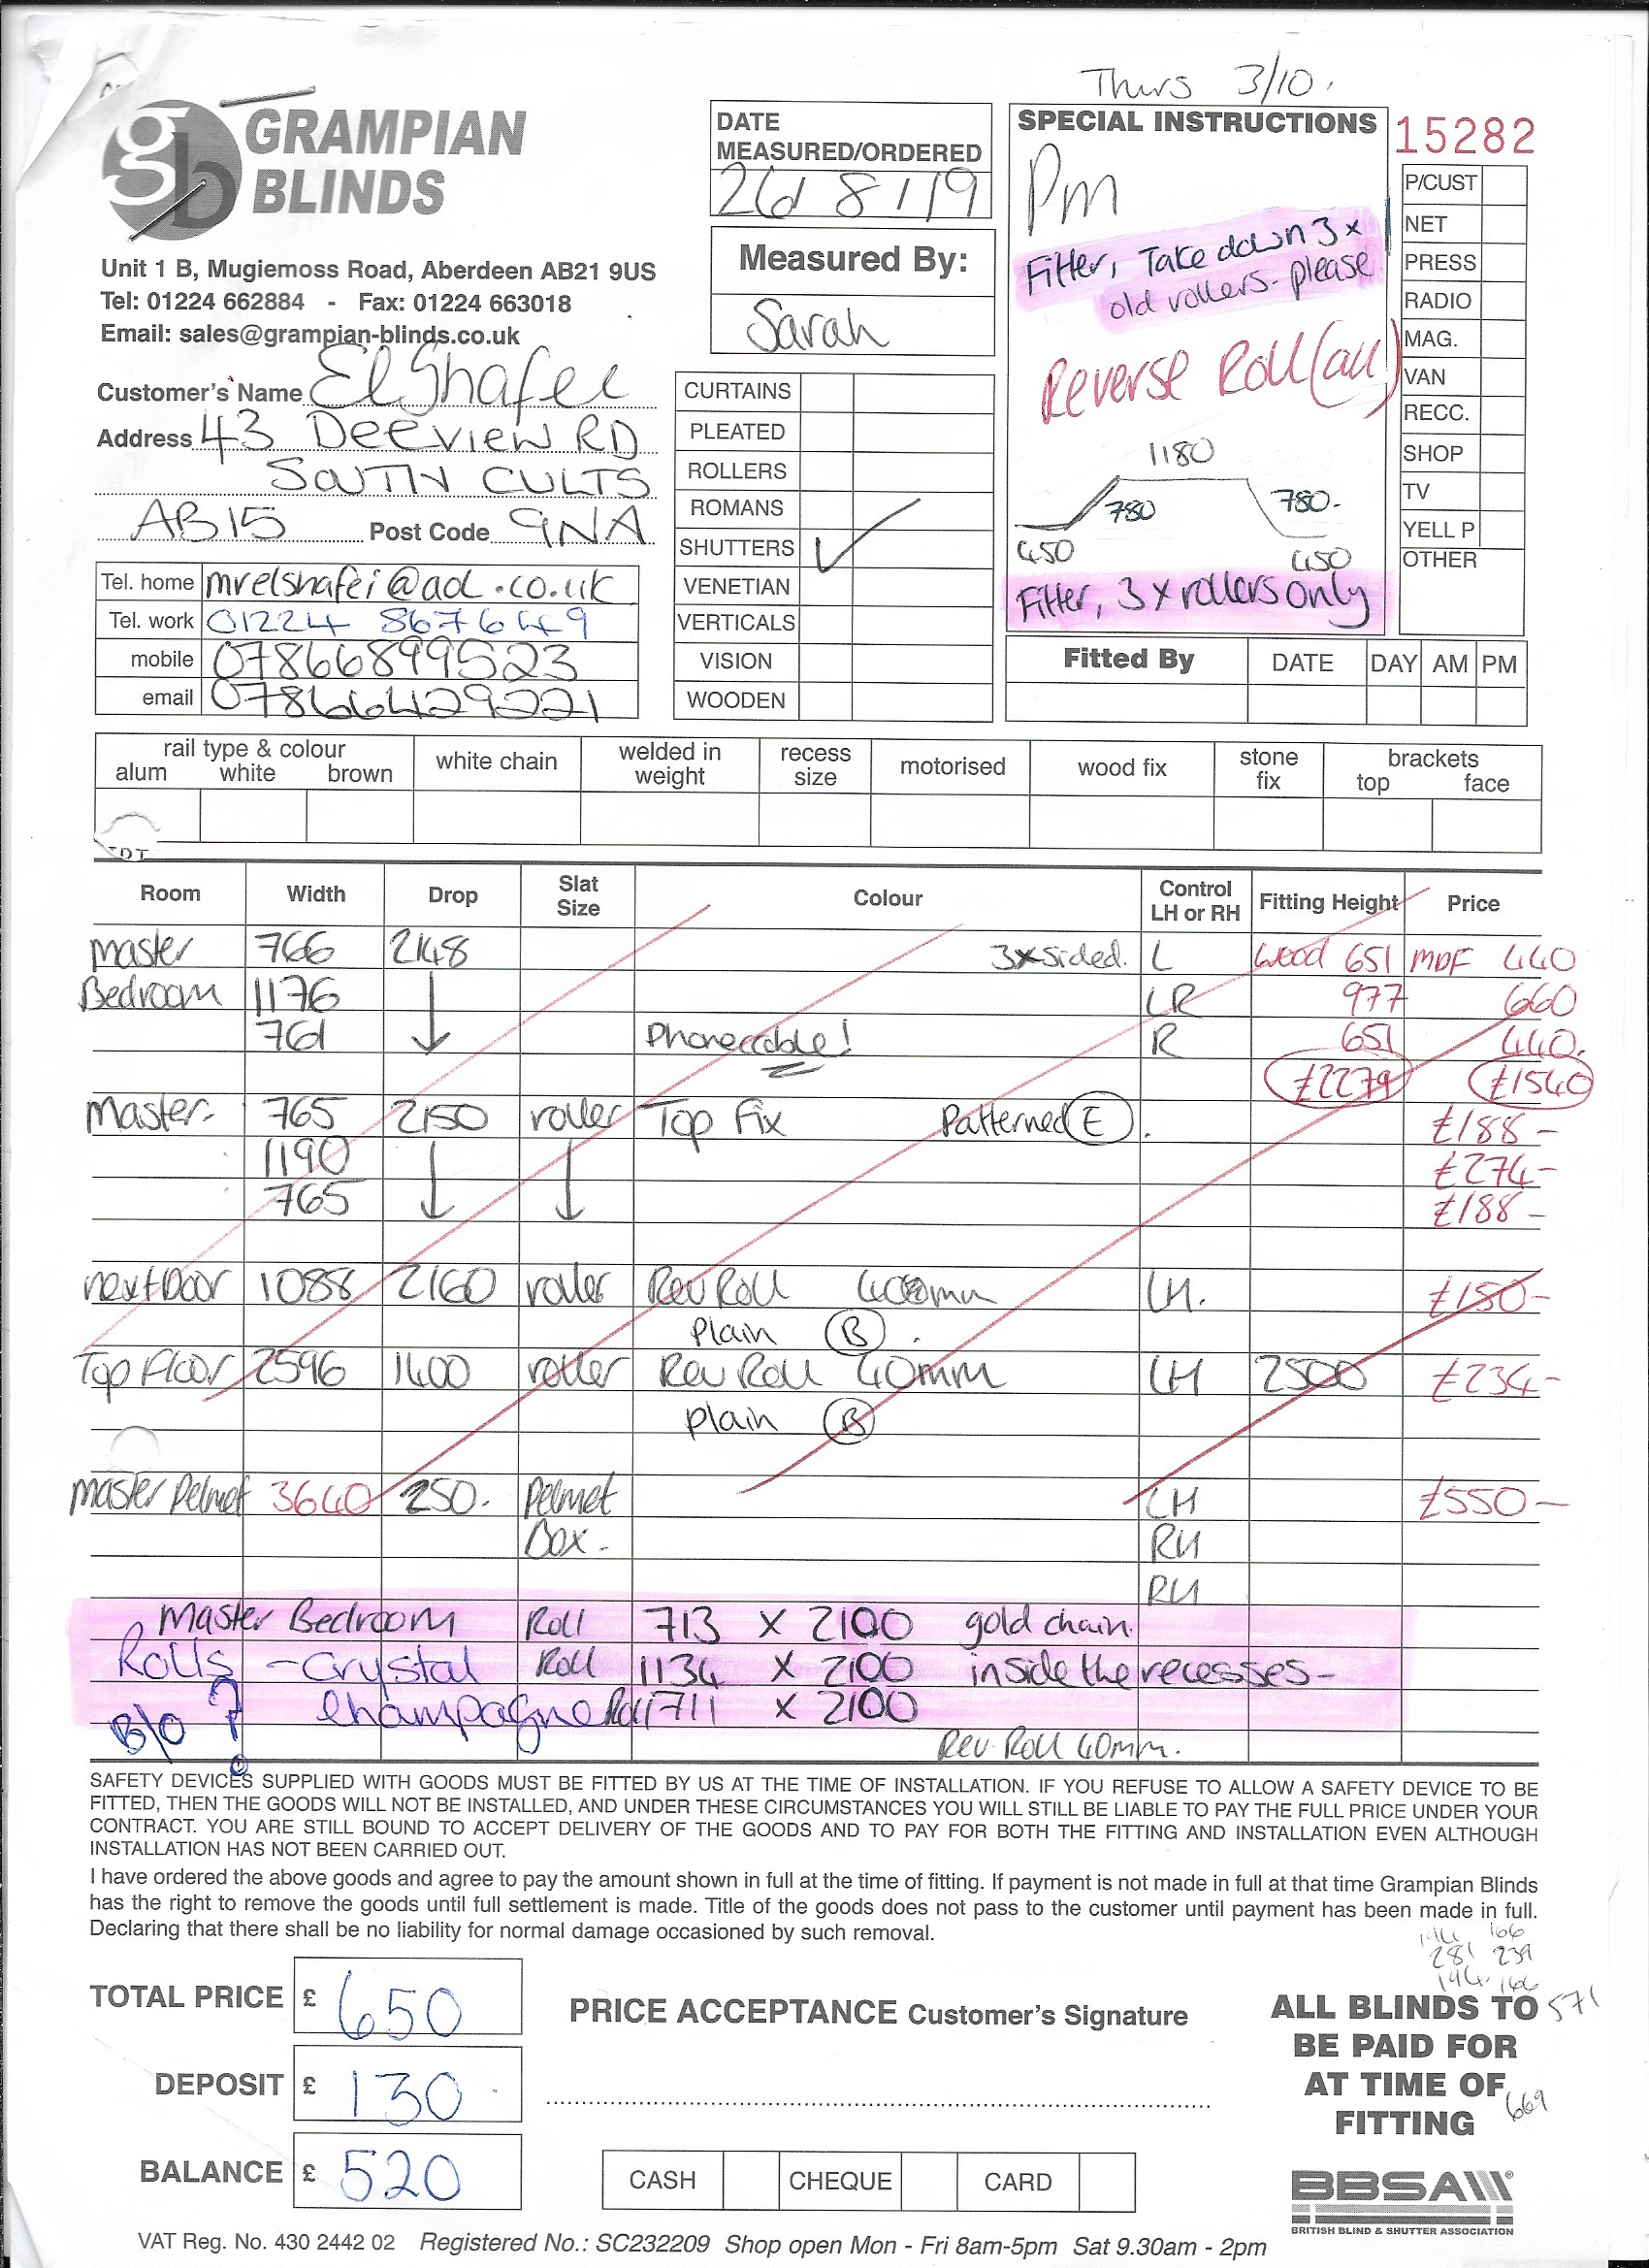 Thurs 3/10.
GRAMPIAN
BLINDS
Unit 1 B, Mugiemoss Road, Aberdeen AB21 9US
Tel: 01224 662884 - Fax: 01224 663018
Email: sales@grampian-blinds.co.uk
Customer's Name El Shafei
Address 43 DEEVIEW RD
SOUTH CULTS
AB15 Post Code 9NA
Tel. home mrelshafei@aol.co.uk
Tel. work 01224 8676449
mobile 07866899523
email 07866429221
DATE
MEASURED/ORDERED
26/8/19
Measured By:
Sarah
CURTAINS
PLEATED
ROLLERS
ROMANS
SHUTTERS ✓
VENETIAN
VERTICALS
VISION
WOODEN
SPECIAL INSTRUCTIONS
Pm
Fitter, Take down 3x
old rollers- please
Reverse Roll (all)
1180
780 780-
450 450
Fitter, 3 x rollers only
15282
P/CUST
NET
PRESS
RADIO
MAG.
VAN
RECC.
SHOP
TV
YELL P
OTHER
Fitted By DATE DAY AM PM
rail type & colour
alum white brown
white chain
welded in
weight
recess
size
motorised
wood fix
stone
fix
brackets
top face
Room Width Drop Slat Size Colour Control LH or RH Fitting Height Price
Master 766 2148 3xsided. L Wood 651 MDF 440
Bedroom 1176 LR 977 660
761 Phonecable! R 651 440.
£2279 £1540
Master. 765 2150 roller Top Fix Patterned E. £188-
1190 £274-
765 £188-
next Door 1088 2160 roller Rev Roll 40mm LH. £150-
Plain B.
Top Floor 2596 1400 roller Rev Roll 40mm LH 2500 £234-
plain B
Master Pelmet 3640 250. Pelmet LH £550-
Box. RH
RH
Master Bedroom Roll 713 x 2100 gold chain.
Rolls - Crystal Roll 1134 x 2100 inside the recesses-
B/O ? Champagne Roll 711 x 2100
Rev Roll 40mm.
SAFETY DEVICES SUPPLIED WITH GOODS MUST BE FITTED BY US AT THE TIME OF INSTALLATION. IF YOU REFUSE TO ALLOW A SAFETY DEVICE TO BE
FITTED, THEN THE GOODS WILL NOT BE INSTALLED, AND UNDER THESE CIRCUMSTANCES YOU WILL STILL BE LIABLE TO PAY THE FULL PRICE UNDER YOUR
CONTRACT. YOU ARE STILL BOUND TO ACCEPT DELIVERY OF THE GOODS AND TO PAY FOR BOTH THE FITTING AND INSTALLATION EVEN ALTHOUGH
INSTALLATION HAS NOT BEEN CARRIED OUT.
I have ordered the above goods and agree to pay the amount shown in full at the time of fitting. If payment is not made in full at that time Grampian Blinds
has the right to remove the goods until full settlement is made. Title of the goods does not pass to the customer until payment has been made in full.
Declaring that there shall be no liability for normal damage occasioned by such removal.
194 166
281 239
194 166
571
669
TOTAL PRICE £ 650
DEPOSIT £ 130
BALANCE £ 520
PRICE ACCEPTANCE Customer's Signature
CASH CHEQUE CARD
ALL BLINDS TO
BE PAID FOR
AT TIME OF
FITTING
BBSA
BRITISH BLIND & SHUTTER ASSOCIATION
VAT Reg. No. 430 2442 02 Registered No.: SC232209 Shop open Mon - Fri 8am-5pm Sat 9.30am - 2pm